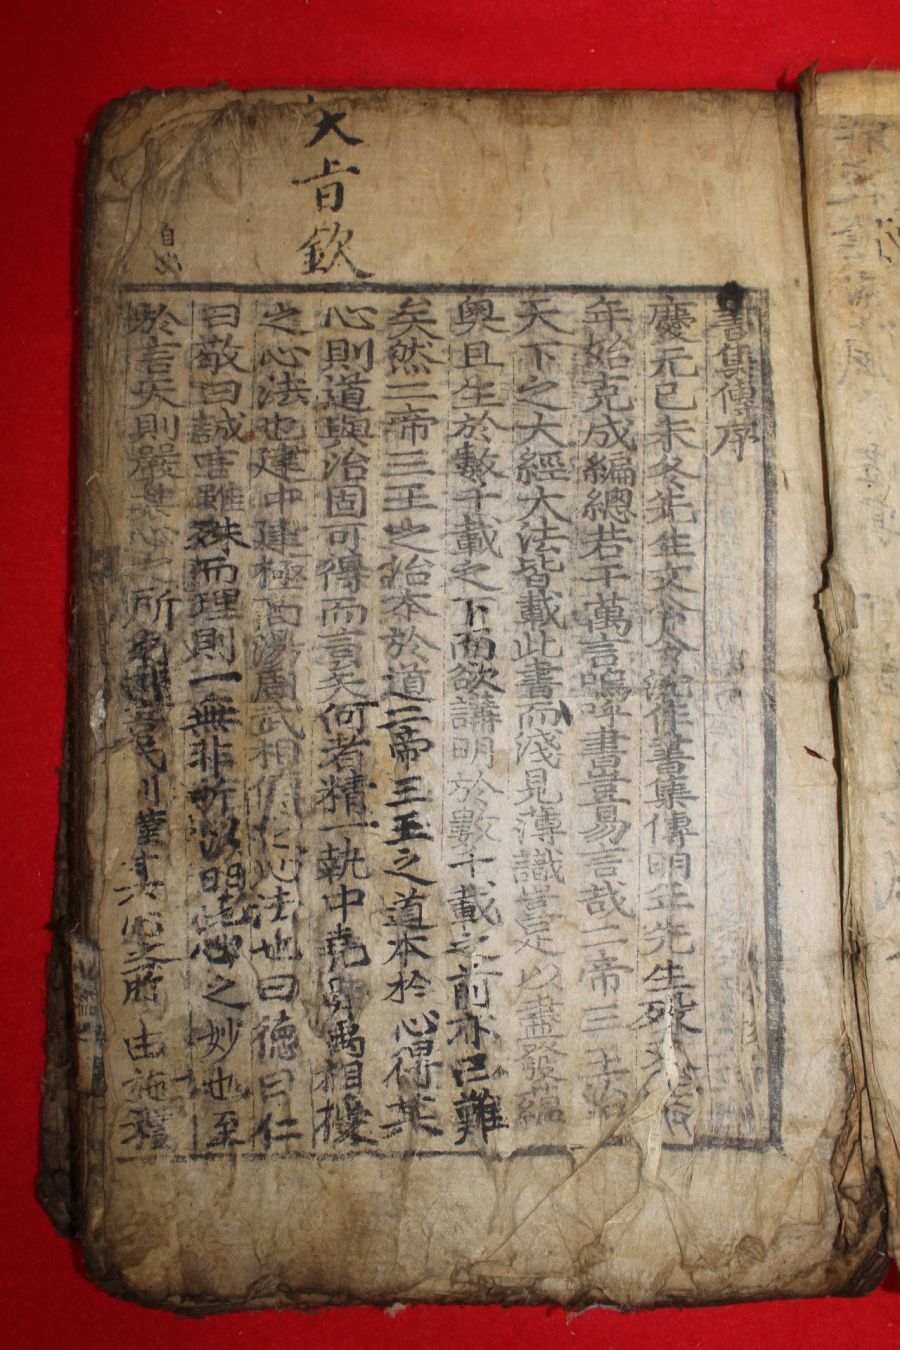 書集傳序
慶元己未冬先生文公令沈作書集傳明年先生歿又
年始克成編總若干萬言嗚呼書豈易言哉二帝三王治
天下之大經大法皆載此書而淺見薄識豈足以盡發蘊
奧且生於數千載之下而欲講明於數千載之前亦已難
矣然二帝三王之治本於道二帝三王之道本於心得其
心則道與治固可得而言矣何者精一執中堯舜禹相授
之心法也建中建極商湯周武相傳之心法也曰德曰仁
曰敬曰誠言雖殊而理則一無非所以明此心之妙也至
於言天則嚴其心之所 其心之所由施禮
大旨欽